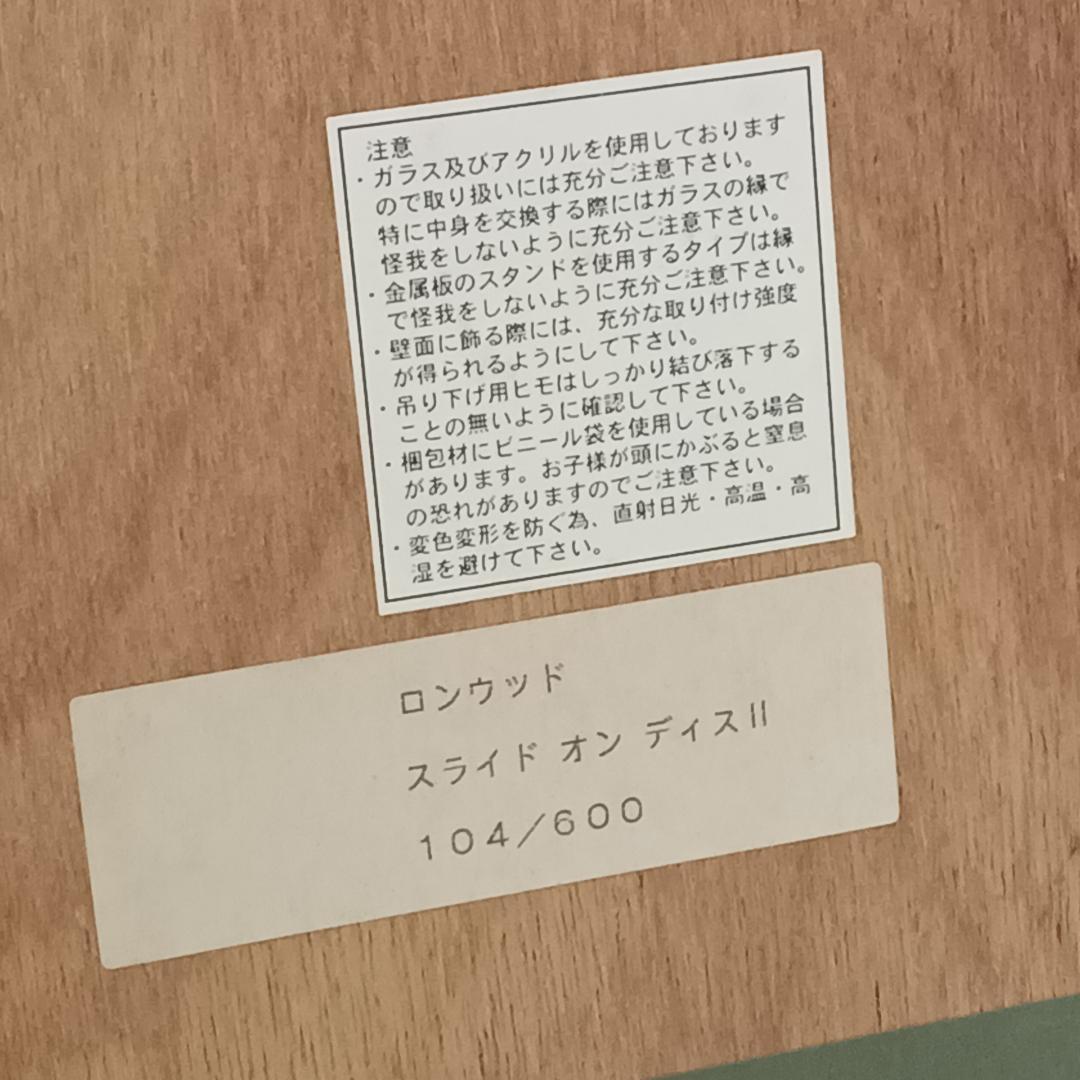 注意
・ガラス及びアクリルを使用しております
ので取り扱いには充分ご注意下さい。
特に中身を交換する際にはガラスの縁で
怪我をしないように充分ご注意下さい。
・金属板のスタンドを使用するタイプは縁
で怪我をしないように充分ご注意下さい。
・壁面に飾る際には、充分な取り付け強度
が得られるようにして下さい。
・吊り下げ用ヒモはしっかり結び落下する
ことの無いように確認して下さい。
・梱包材にビニール袋を使用している場合
があります。お子様が頭にかぶると窒息
の恐れがありますのでご注意下さい。
・変色変形を防ぐ為、直射日光・高温・高
湿を避けて下さい。
ロンウッド
スライド オン ディスII
104/600